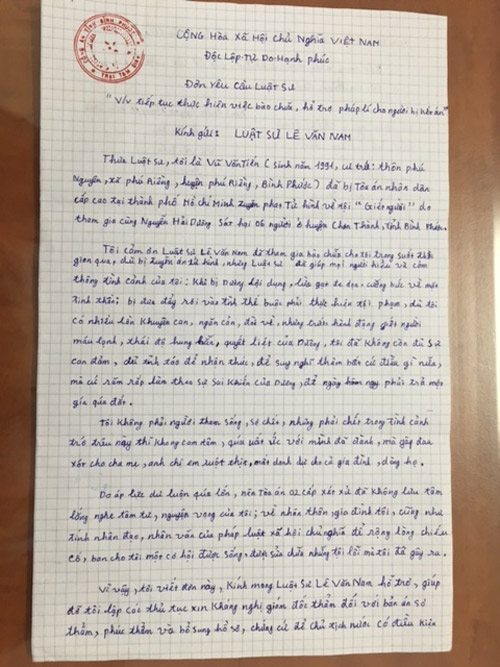 CÔNG AN TỈNH BÌNH PHƯỚC
TRẠI TẠM GIAM
CỘNG Hòa Xã Hội Chủ Nghĩa VIỆT NAM
Độc Lập-Tự Do-Hạnh phúc
Đơn Yêu Cầu Luật Sư
"V/v tiếp tục thực hiện việc bào chữa, hỗ trợ pháp lí cho người bị kết án"
Kính gửi: LUẬT SƯ LÊ VĂN NAM
Thưa Luật sư, tôi là Vũ Văn Tiến (sinh năm 1991, cư trú: thôn phú
Nguyên, xã phú Riềng, huyện phú Riềng, Bình Phước) đã bị Tòa án nhân dân
cấp cao tại thành phố Hồ Chí Minh tuyên phạt Tử hình về tội "Giết người" do
tham gia cùng Nguyễn Hải Dương Sát hại 06 người ở huyện Chơn Thành, tỉnh Bình Phước.
Tôi cảm ơn Luật sư Lê Văn Nam đã tham gia bào chữa cho tôi trong suốt thời
gian qua, dù bị tuyên án tử hình, nhưng Luật sư đã giúp mọi người hiểu và cảm
thông tình cảnh của tôi: Khi bị Dương lợi dụng, lừa gạt đe dọa, cưỡng bức về mặt
tinh thần; bị đưa đẩy rơi vào tình thế buộc phải thực hiện tội phạm, dù tôi
có nhiều lần Khuyên can, ngăn cản, dù về, nhưng trước hành động giết người
máu lạnh, thái độ hung hãn, quyết liệt của Dương, tôi đã Không còn đủ Sự
can đảm, đủ tỉnh táo để nhận thức, để suy nghĩ thêm bất cứ điều gì nữa,
mà cứ răm rắp làm theo sự Sai Khiến của Dương, để ngày hôm nay phải trả một
giá quá đắt.
Tôi Không phải người tham sống, sợ chết, nhưng phải chết trong tình cảnh
trớ trêu này thì Không cam tâm, quá sức với mình đã đành, mà gây đau
xót cho cha mẹ, anh chị em ruột thịt, mất danh dự cho cả gia đình, dòng họ.
Do áp lực dư luận quá lớn, nên Tòa án 02 cấp xét xử đã Không lưu tâm
lắng nghe tâm tư, nguyện vọng của tôi; về nhân thân, gia đình tôi, cũng như
tính nhân đạo, nhân văn của pháp luật xã hội chủ nghĩa để rộng lòng chiếu
cố, ban cho tôi một cơ hội được sống, được sửa chữa những tội lỗi mà tôi đã gây ra.
Vì vậy, tôi viết đơn này, Kính mong Luật Sư Lê Văn Nam hỗ trợ, giúp
đỡ tôi lập các thủ tục xin Kháng nghị giám đốc thẩm đối với bản án sơ
thẩm, phúc thẩm và bổ sung hồ sơ, chứng cứ để Chủ tịch nước có điều Kiện